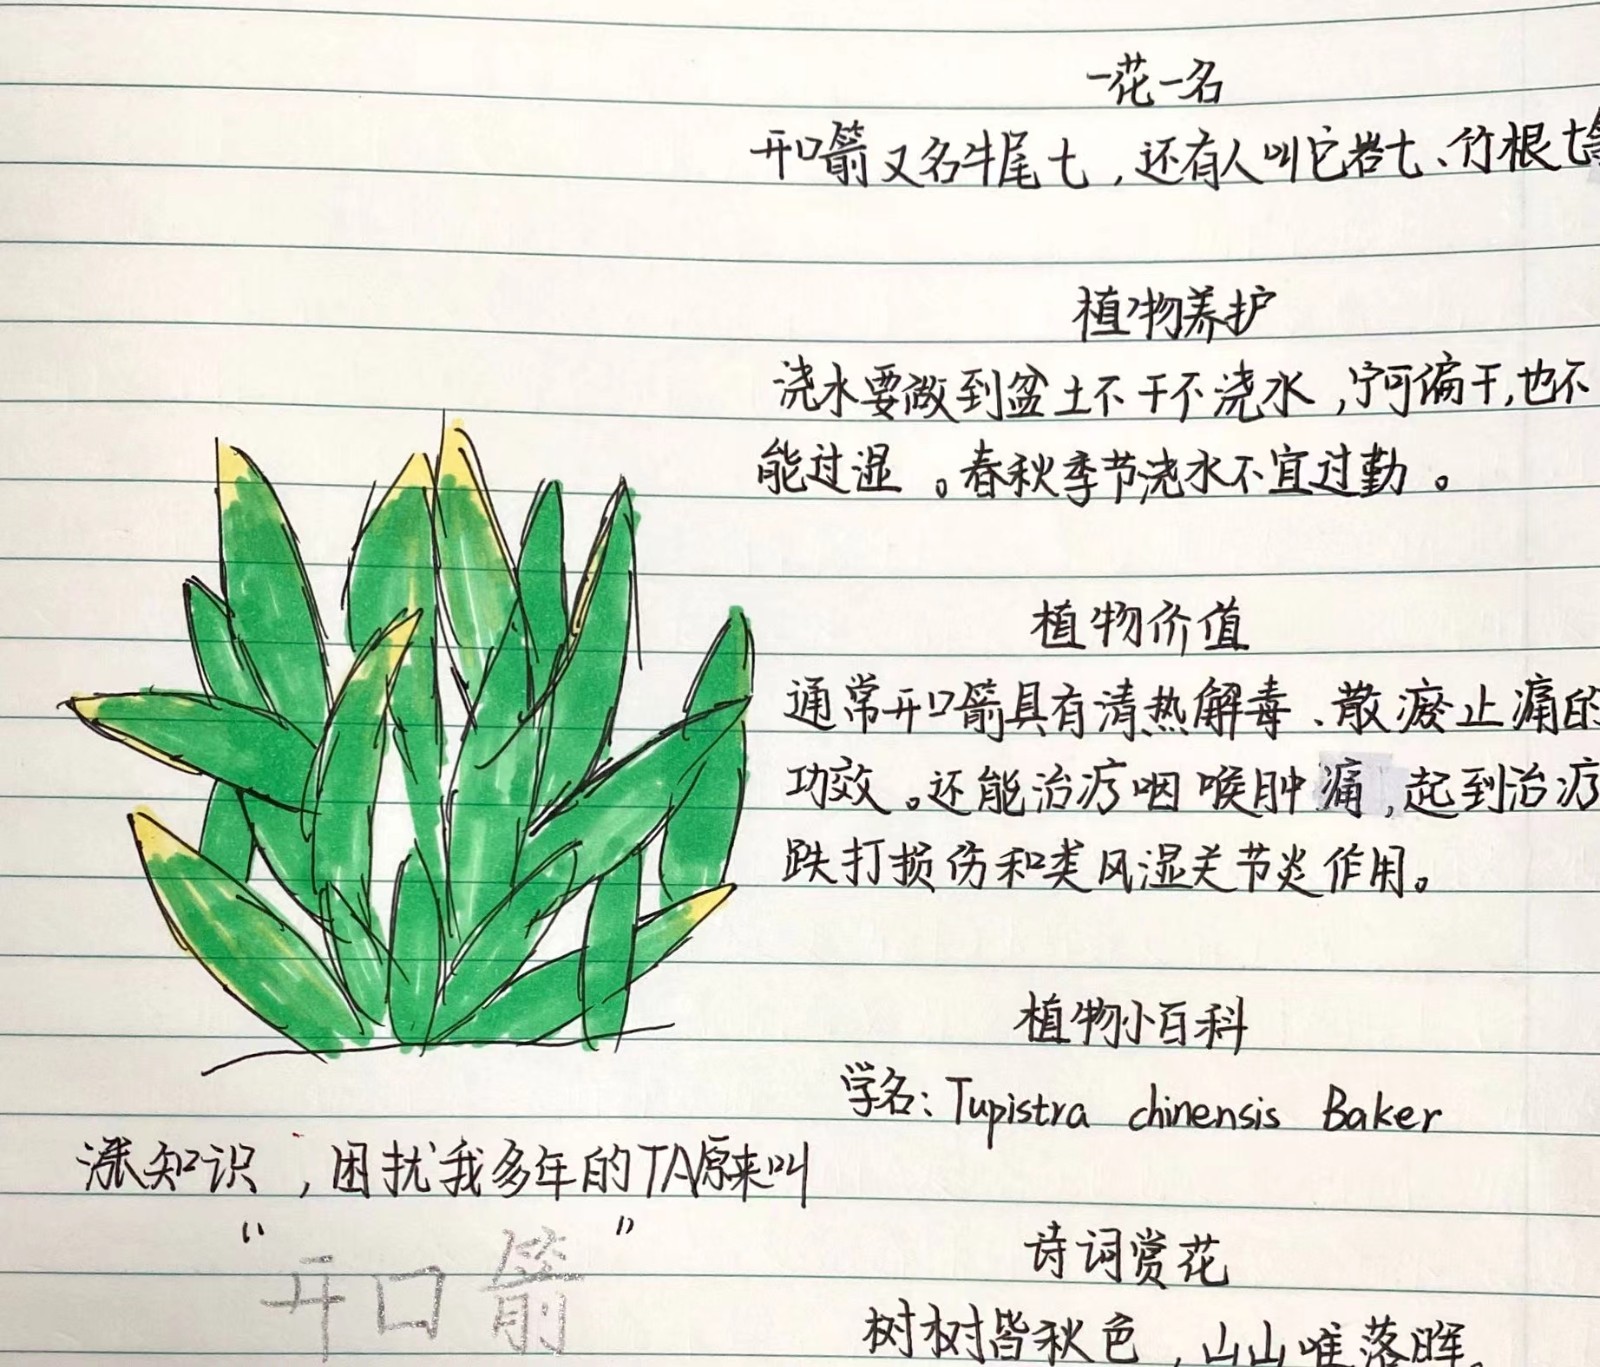 一花一名
开口箭又名牛尾七，还有人叫它岩七、竹根七等
植物养护
浇水要做到盆土不干不浇水，宁可偏干，也不
能过湿。春秋季节浇水不宜过勤。
植物价值
通常开口箭具有清热解毒、散瘀止痛的
功效。还能治疗咽喉肿痛，起到治疗
跌打损伤和类风湿关节炎作用。
植物小百科
学名：Tupistra chinensis Baker
涨知识，困扰我多年的TA原来叫
“开口箭”
诗词赏花
树树皆秋色，山山唯落晖。